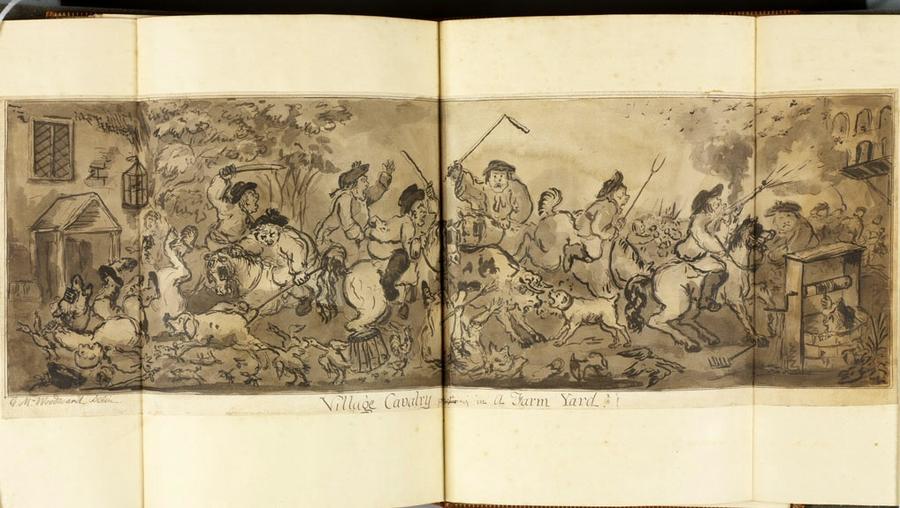 G. M. Woodward Delin
Village Cavalry in A Farm Yard!!